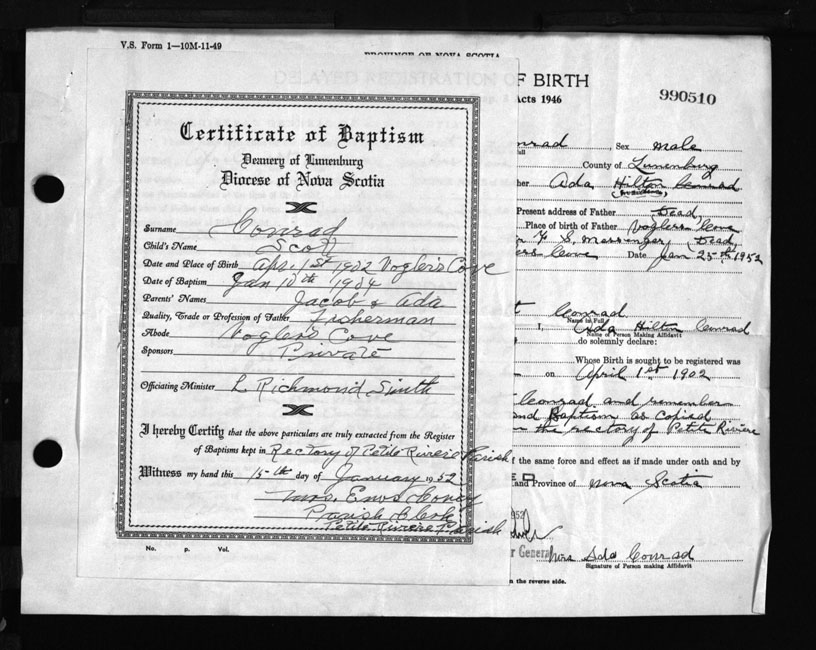 V.S. Form 1—10M-11-49
PROVINCE OF NOVA SCOTIA
DELAYED REGISTRATION OF BIRTH
Acts 1946
990510
Certificate of Baptism
Deanery of Lunenburg
Diocese of Nova Scotia
Surname Conrad
Child's Name Scott
Date and Place of Birth Apr. 1st 1902 Vogler's Cove
Date of Baptism Jan 10th 1904
Parents' Names Jacob & Ada
Quality, Trade or Profession of Father Fisherman
Abode Vogler's Cove
Sponsors Private
Officiating Minister L Richmond Smith
I hereby Certify that the above particulars are truly extracted from the Register
of Baptisms kept in Rectory of Petite Riviere Parish
Witness my hand this 15th day of January 1952
Mrs. Enos
Parish Clerk
Petite Riviere Parish
No. p. Vol.
nrad Sex male
County of Lunenburg
her Ada Hilton Conrad
Present address of Father Dead
Place of birth of Father Voglers Cove
S. Messenger Dead
ers Cove Date Jan 25th 1952
t Conrad
Name in Full
I, Ada Hilton Conrad
Name of Person Making Affidavit
do solemnly declare:
Whose Birth is sought to be registered was
on April 1st 1902
Conrad and remember
and Baptism as Copied
the rectory of Petite Riviere
f the same force and effect as if made under oath and by
and Province of Nova Scotia
1952
r General
Mrs Ada Conrad
Signature of Person making Affidavit
n the reverse side.